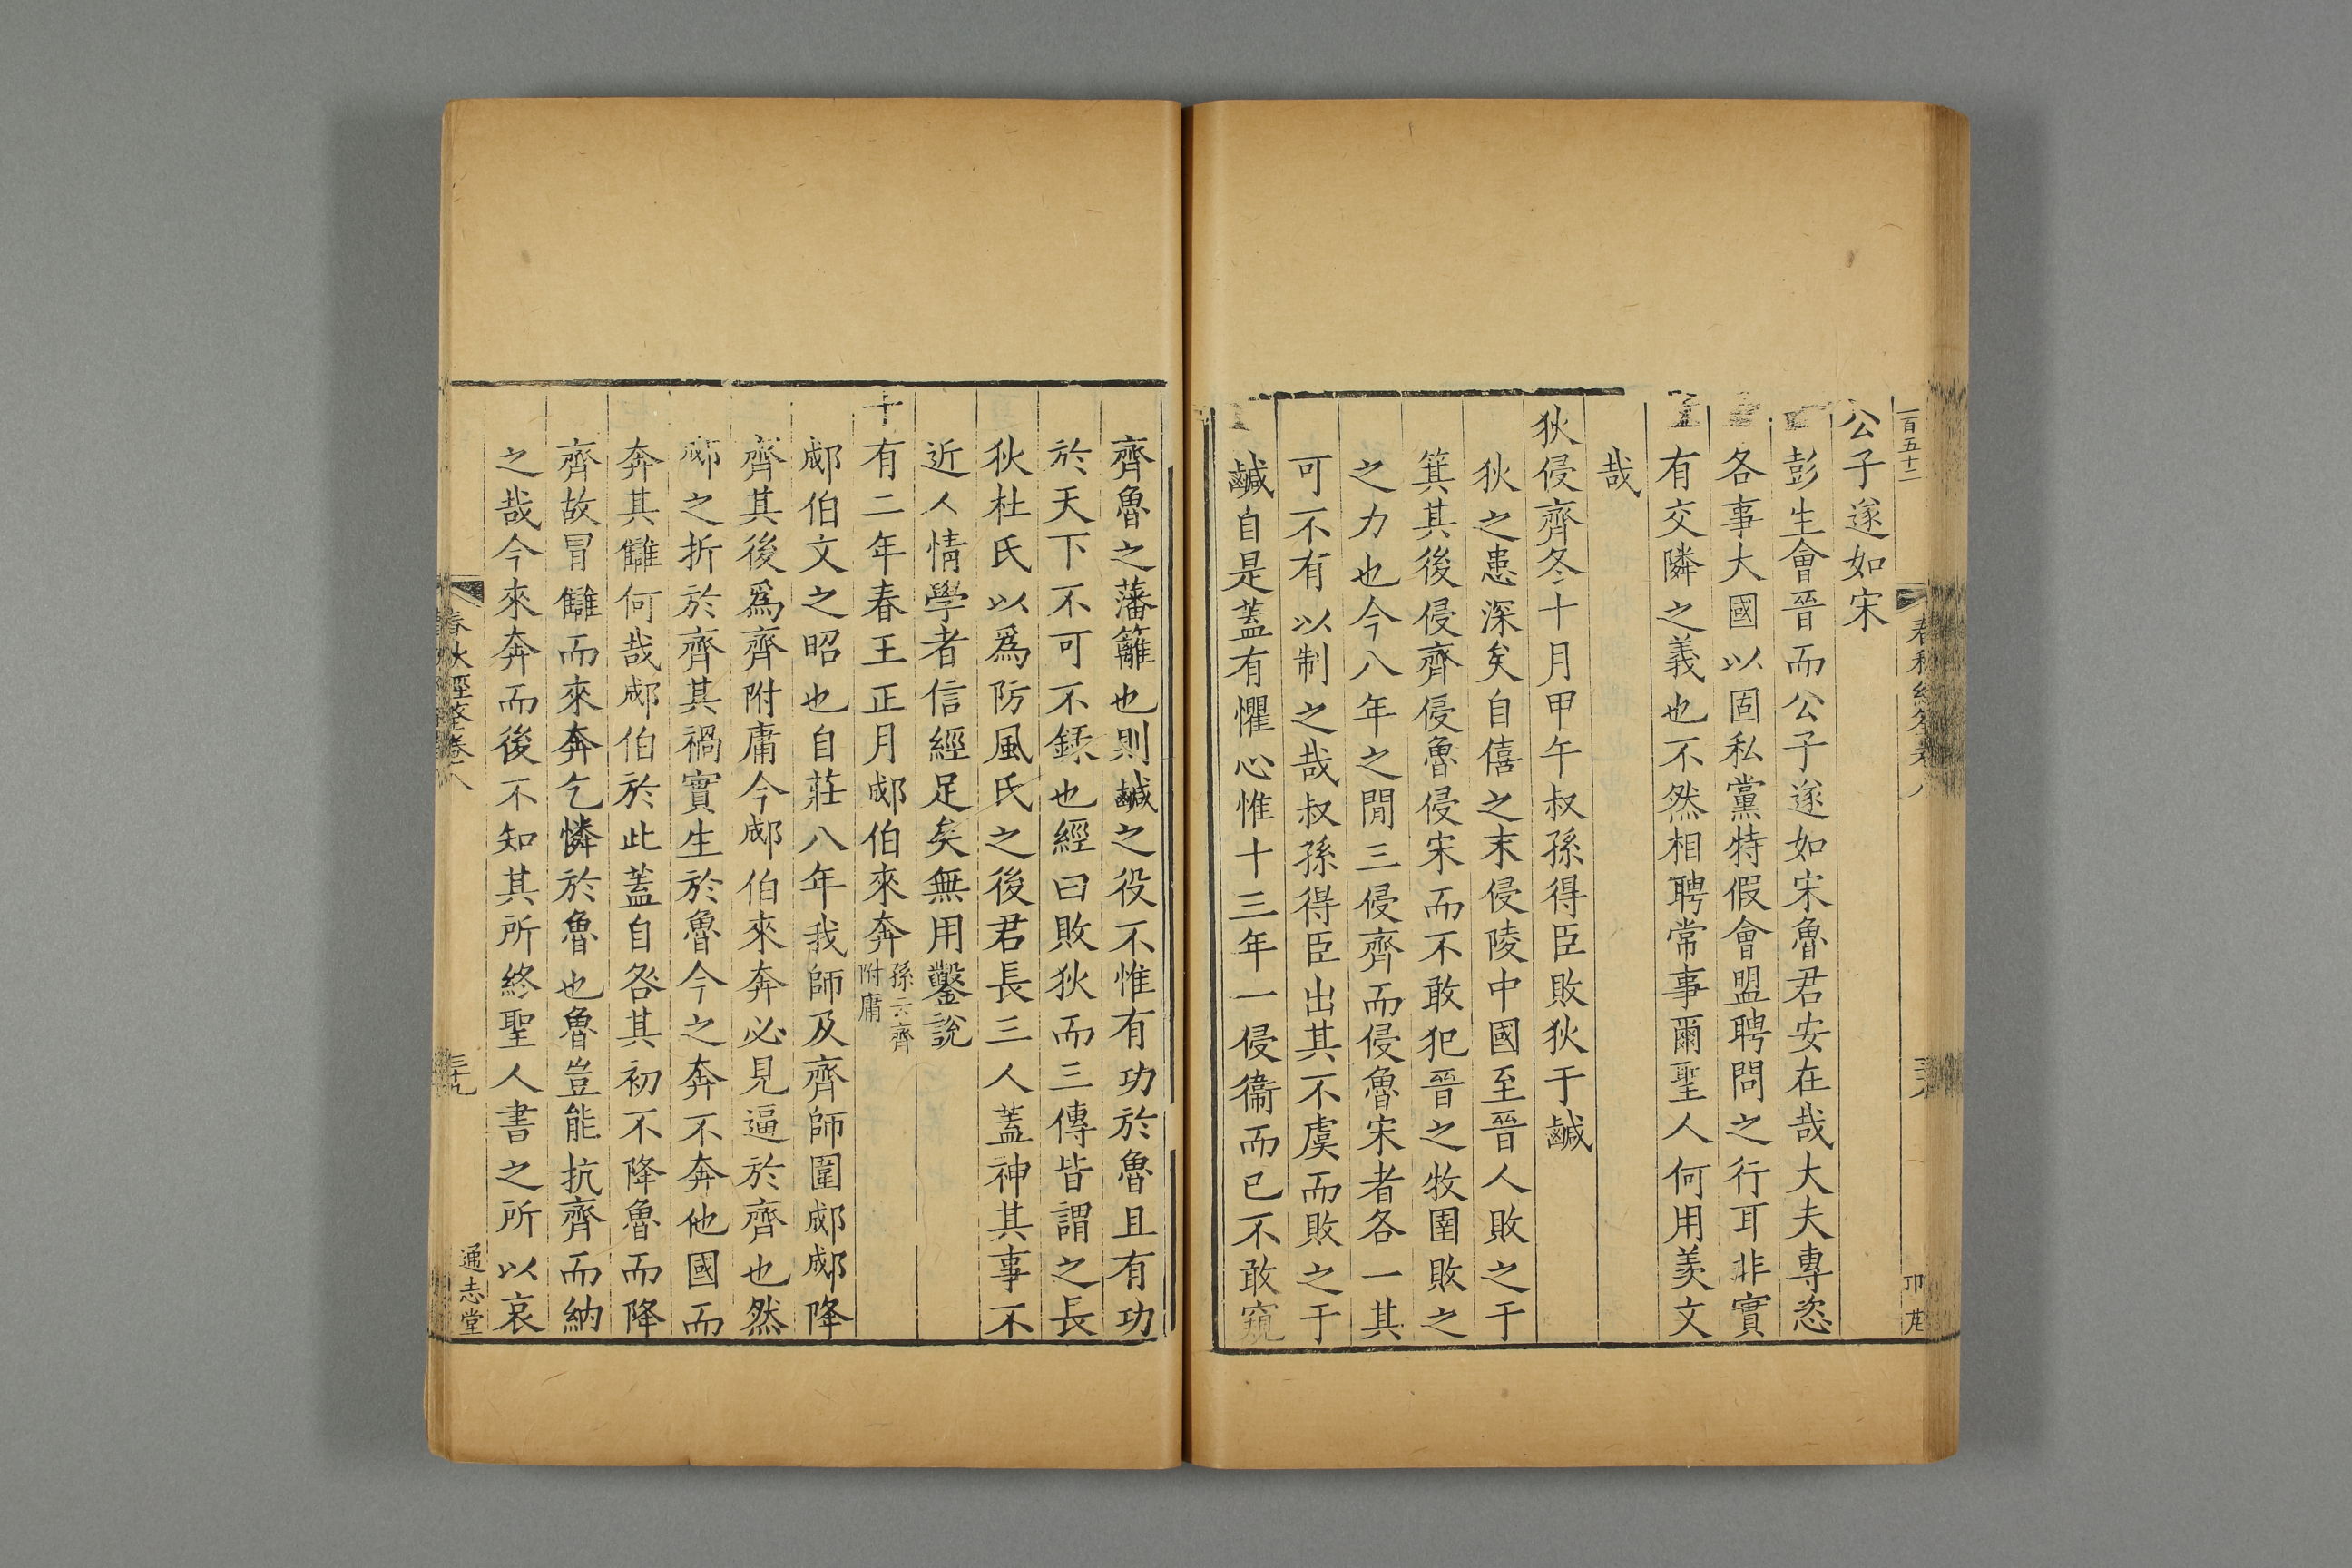 一百五十二
公子遂如宋
彭生會晉而公子遂如宋魯君安在哉大夫專恣
各事大國以固私黨特假會盟聘問之行耳非實
有交隣之義也不然相聘常事爾聖人何用羙文
哉
狄侵齊冬十月甲午叔孫得臣敗狄于鹹
狄之患深矣自僖之末侵陵中國至晉人敗之于
箕其後侵齊侵魯侵宋而不敢犯晉之牧圉敗之
之力也今八年之閒三侵齊而侵魯宋者各一其
可不有以制之哉叔孫得臣出其不虞而敗之于
鹹自是蓋有懼心惟十三年一侵衞而已不敢窺
齊魯之藩籬也則鹹之役不惟有功於魯且有功
於天下不可不錄也經曰敗狄而三傳皆謂之長
狄杜氏以爲防風氏之後君長三人蓋神其事不
近人情學者信經足矣無用鑿說
十有二年春王正月郕伯來奔孫云齊附庸
郕伯文之昭也自莊八年我師及齊師圍郕郕降
齊其後爲齊附庸今郕伯來奔必見逼於齊也然
郕之折於齊其禍實生於魯今之奔不奔他國而
奔其讎何哉郕伯於此蓋自咎其初不降魯而降
齊故冒讎而來奔乞憐於魯也魯豈能抗齊而納
之哉今來奔而後不知其所終聖人書之所以哀
春秋經筌卷八
三十九
通志堂